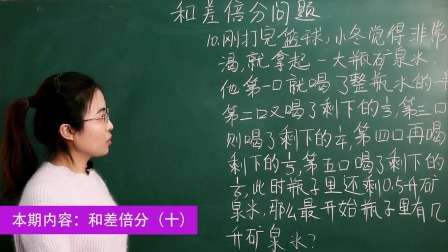 和差倍分问题
10.刚打完篮球,小冬觉得非常
渴,就拿起一大瓶矿泉水,
他第一口就喝了整瓶水的
第二口又喝了剩下的1/3,第三口
则喝了剩下的1/4,第四口再喝
剩下的1/5,第五口喝了剩下的
1/6,此时瓶子里还剩0.5升矿
泉水,那么最开始瓶子里有几
升矿泉水?
本期内容：和差倍分（十）